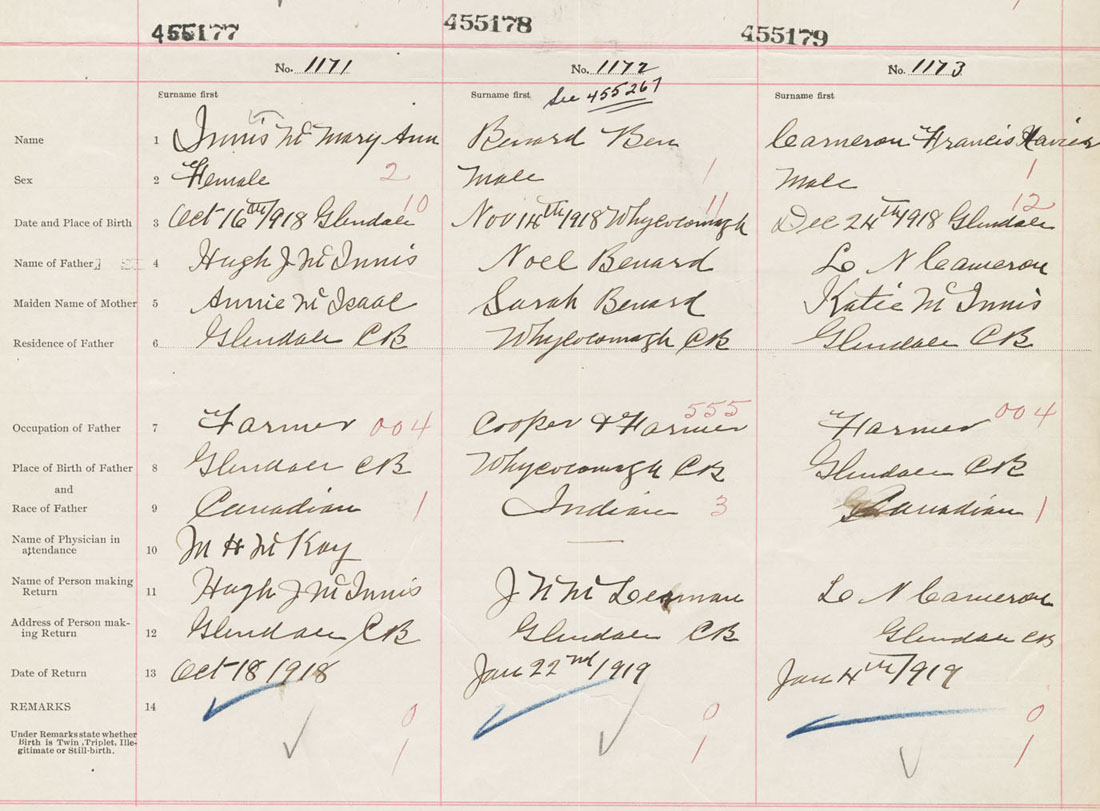 455177 455178 455179
No. 1171 No. 1172 No. 1173
See 455267
Surname first Surname first Surname first
Name 1 Innis Mc Mary Ann Benard Ben Cameron Francis Xavier
Sex 2 Female 2 Male 1 Male 1
10 11 12
Date and Place of Birth 3 Oct 16th/1918 Glendale Nov 14th/1918 Whycocomagh Dec 24th/1918 Glendale
Name of Father 4 Hugh J McInnis Noel Benard L N Cameron
Maiden Name of Mother 5 Annie McIsaac Sarah Benard Katie McInnis
Residence of Father 6 Glendale CB Whycocomagh CB Glendale CB
Occupation of Father 7 Farmer 004 Cooper & Farmer 555 Farmer 004
Place of Birth of Father 8 Glendale CB Whycocomagh CB Glendale CB
and
Race of Father 9 Canadian 1 Indian 3 Canadian 1
Name of Physician in
attendance 10 M H McKay —
Name of Person making
Return 11 Hugh J McInnis J N McLennan L N Cameron
Address of Person mak-
ing Return 12 Glendale CB Glendale CB Glendale CB
Date of Return 13 Oct 18/1918 Jan 22nd/1919 Jan 4th/1919
REMARKS 14 0 0 0
Under Remarks state whether
Birth is Twin, Triplet, Ille-
gitimate or Still-birth. 1 1 1